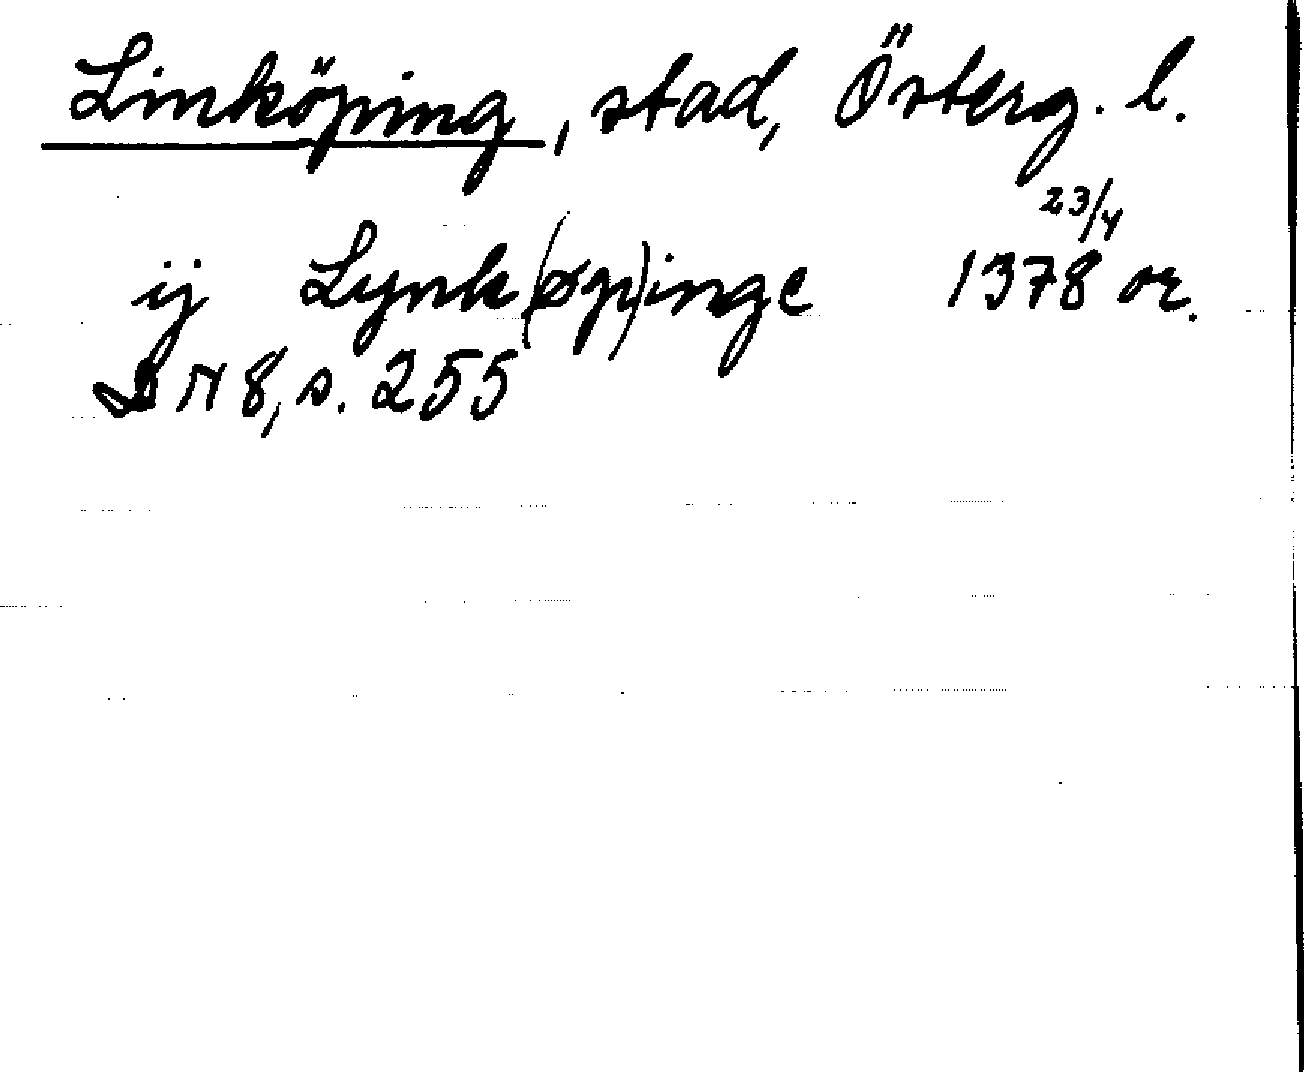 Linköping, stad, Österg. l.
ij Lynk(øp)inge 1378 23/4 or.
DN 8, s. 255